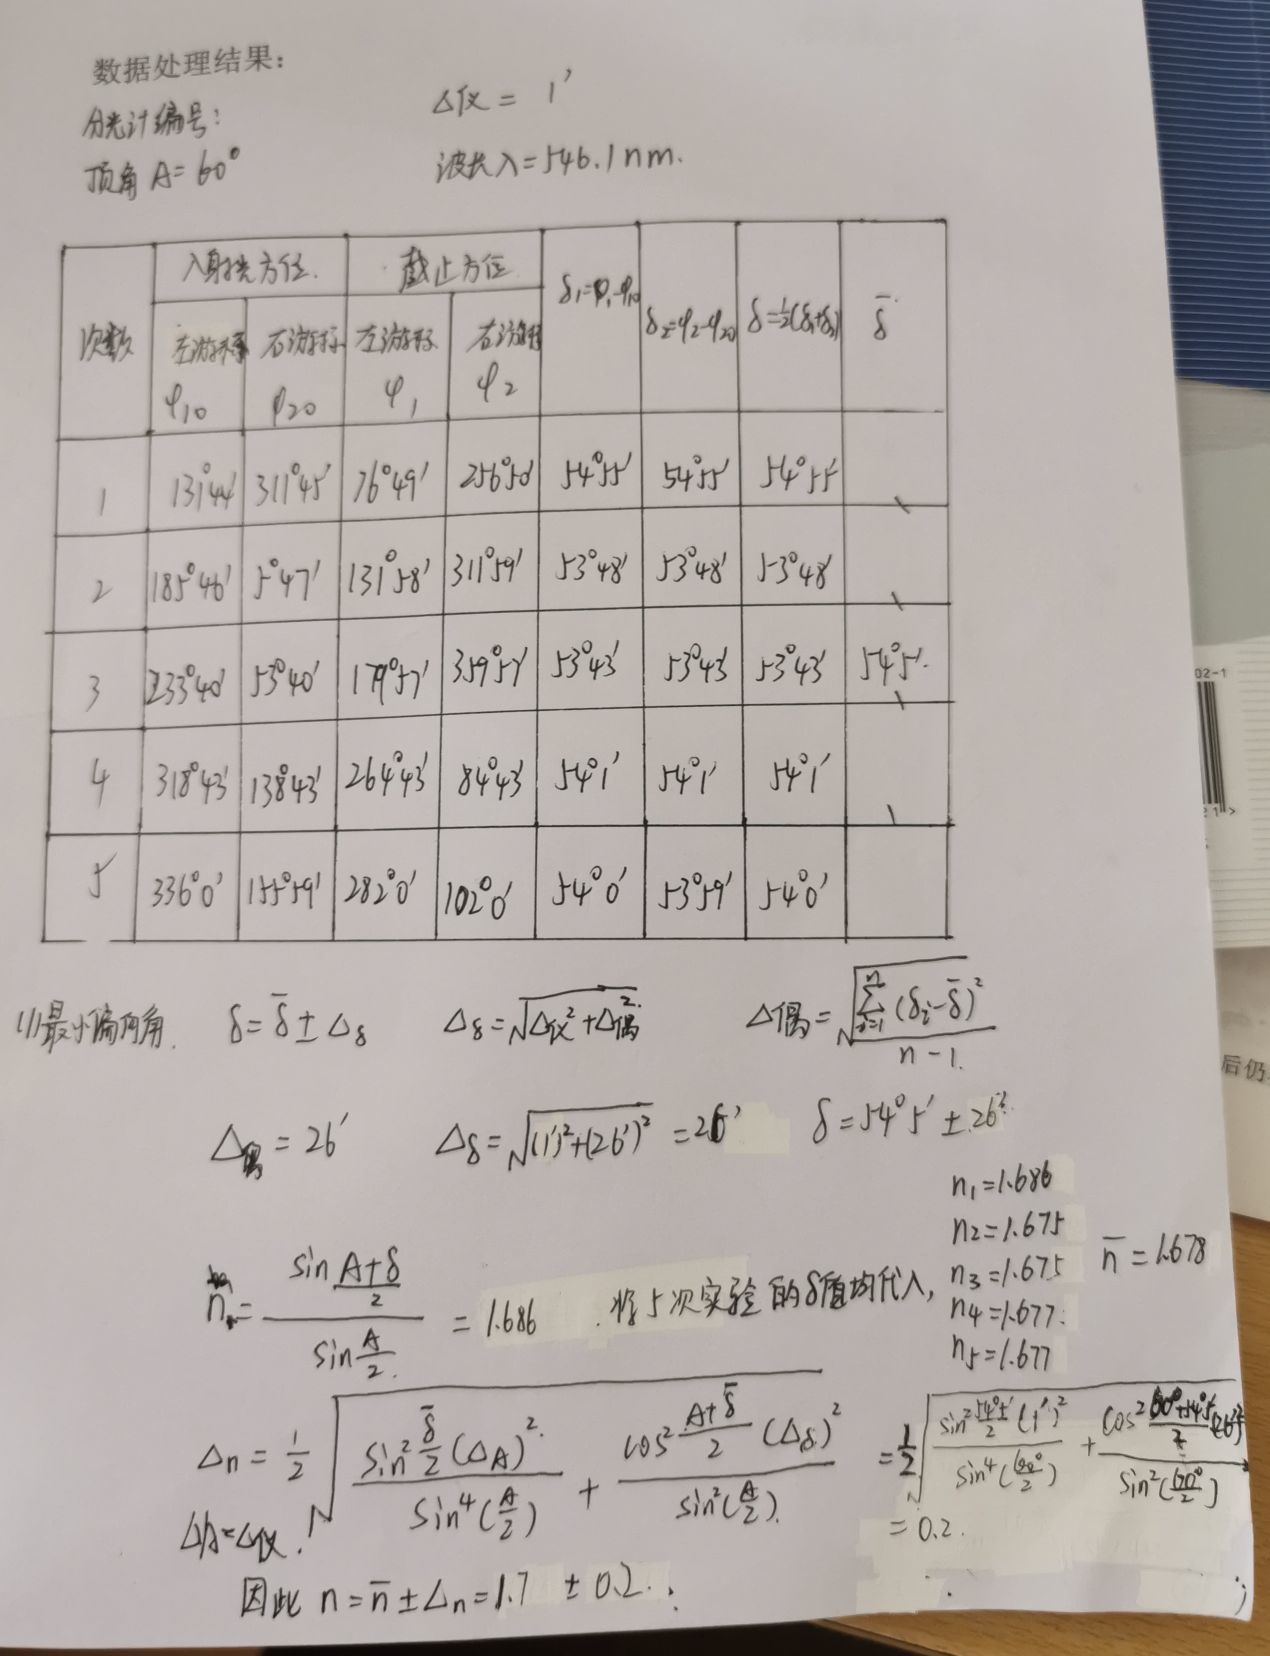 数据处理结果：
分光计编号：
Δ仪 = 1′
顶角 A = 60°
波长 λ = 546.1nm.
次数 入射光方位. 截止方位 δ₁=φ₁-φ₁₀ δ₂=φ₂-φ₂₀ δ=½(δ₁+δ₂) δ̄
左游标 φ₁₀ 右游标 φ₂₀ 左游标 φ₁ 右游标 φ₂
1 131°44′ 311°45′ 76°49′ 256°50′ 54°55′ 54°55′ 54°55′
2 185°46′ 5°47′ 131°58′ 311°59′ 53°48′ 53°48′ 53°48′
3 233°40′ 53°40′ 179°57′ 359°57′ 53°43′ 53°43′ 53°43′ 54°5′.
4 318°43′ 138°43′ 264°43′ 84°43′ 54°1′ 54°1′ 54°1′
5 336°0′ 155°59′ 282°0′ 102°0′ 54°0′ 53°59′ 54°0′
(1)最小偏向角. δ=δ̄±Δδ Δδ=√(Δ仪²+Δ偶²) Δ偶=√(Σᵢ₌₁ⁿ(δᵢ-δ̄)²/(n-1))
Δ偶=26′ Δδ=√((1′)²+(26′)²)=26′ δ=54°5′±26′
n₁=1.686
n₂=1.675
n₃=1.675
n₄=1.677
n₅=1.677
n̄=1.678
n=sin((A+δ)/2)/sin(A/2)=1.686 . 将5次实验的δ值均代入,
Δn=½√(sin²(δ̄/2)(ΔA)²/sin⁴(A/2)+cos²((A+δ̄)/2)(Δδ)²/sin²(A/2)) =½√(sin²(54°5′/2)(1′)²/sin⁴(60°/2)+cos²((60°+54°5′)/2)(26′)²/sin²(60°/2))
ΔA=Δ仪.
=0.2.
因此 n=n̄±Δn=1.7 ±0.2.
02-1
后仍